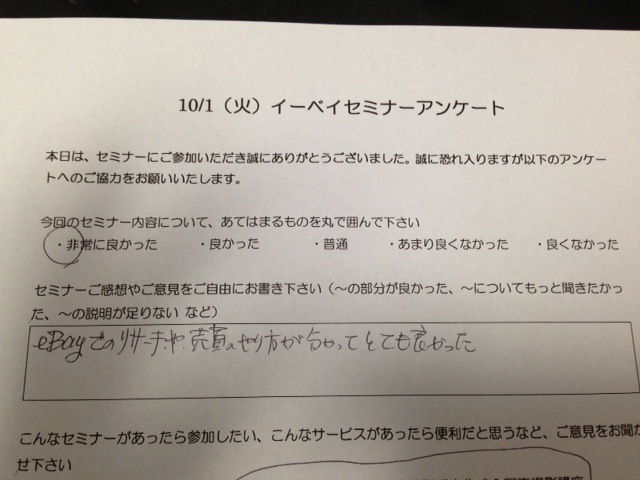 10/1（火）イーベイセミナーアンケート
本日は、セミナーにご参加いただき誠にありがとうございました。誠に恐れ入りますが以下のアンケー
トへのご協力をお願いいたします。
今回のセミナー内容について、あてはまるものを丸で囲んで下さい
・非常に良かった ・良かった ・普通 ・あまり良くなかった ・良くなかった
セミナーご感想やご意見をご自由にお書き下さい（～の部分が良かった、～についてもっと聞きたかっ
た、～の説明が足りない など）
eBayでのリサーチや売買のやり方が分かってとても良かった
こんなセミナーがあったら参加したい、こんなサービスがあったら便利だと思うなど、ご意見をお聞か
せ下さい